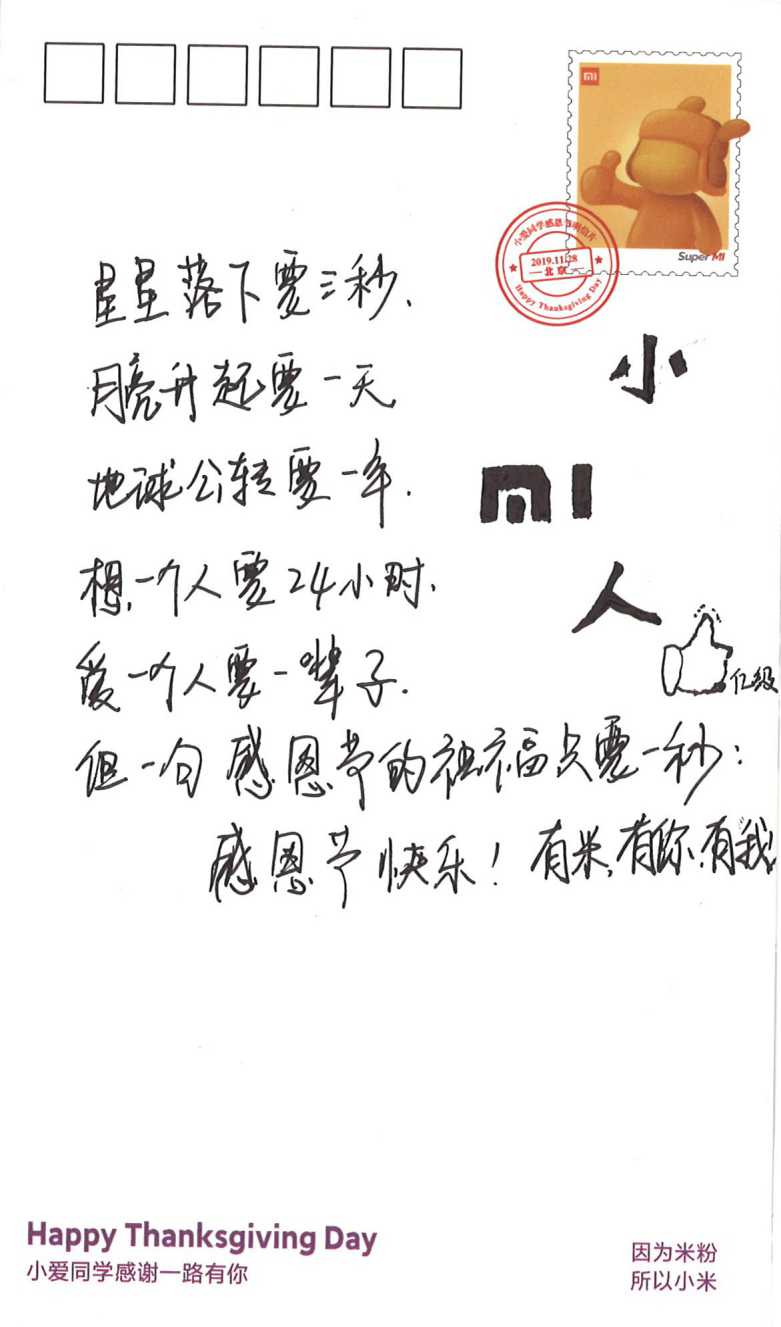 MI
Super MI
小爱同学感恩节明信片
2019.11.28
北京
Happy Thanksgiving Day
星星落下要三秒、
月亮升起要一天
地球公转要一年.
想一个人要24小时、
爱一个人要一辈子.
但一句感恩节的祝福只要一秒:
感恩节快乐! 有米,有你,有我!
小
MI
人
亿级
Happy Thanksgiving Day
小爱同学感谢一路有你
因为米粉
所以小米